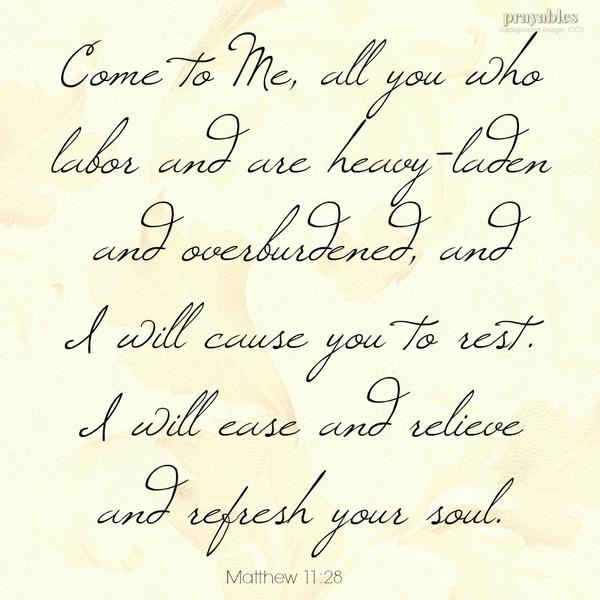 prayables
background image: CC0
Come to Me, all you who
labor and are heavy-laden
and overburdened, and
I will cause you to rest.
I will ease and relieve
and refresh your soul.
Matthew 11:28